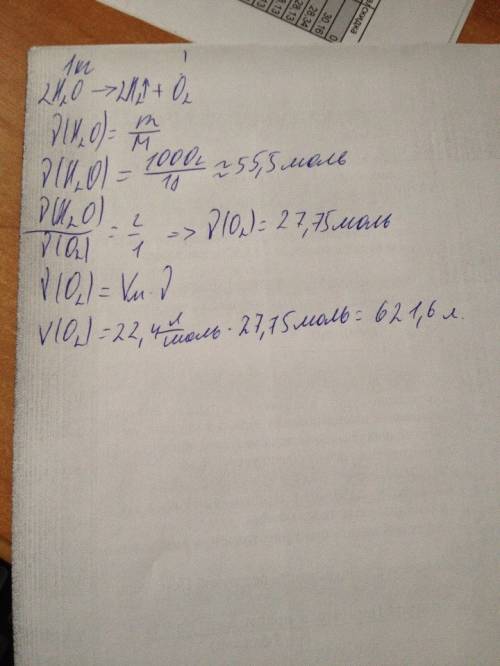 1кг
2H₂O → 2H₂↑ + O₂
ν(H₂O) = m/M
ν(H₂O) = 1000г/18 ≈ 55,5 моль
ν(H₂O)/ν(O₂) = 2/1 => ν(O₂) = 27,75 моль
ν(O₂) = Vм · ν
V(O₂) = 22,4 л/моль · 27,75 моль = 621,6 л.
30.16
28.34
28.13